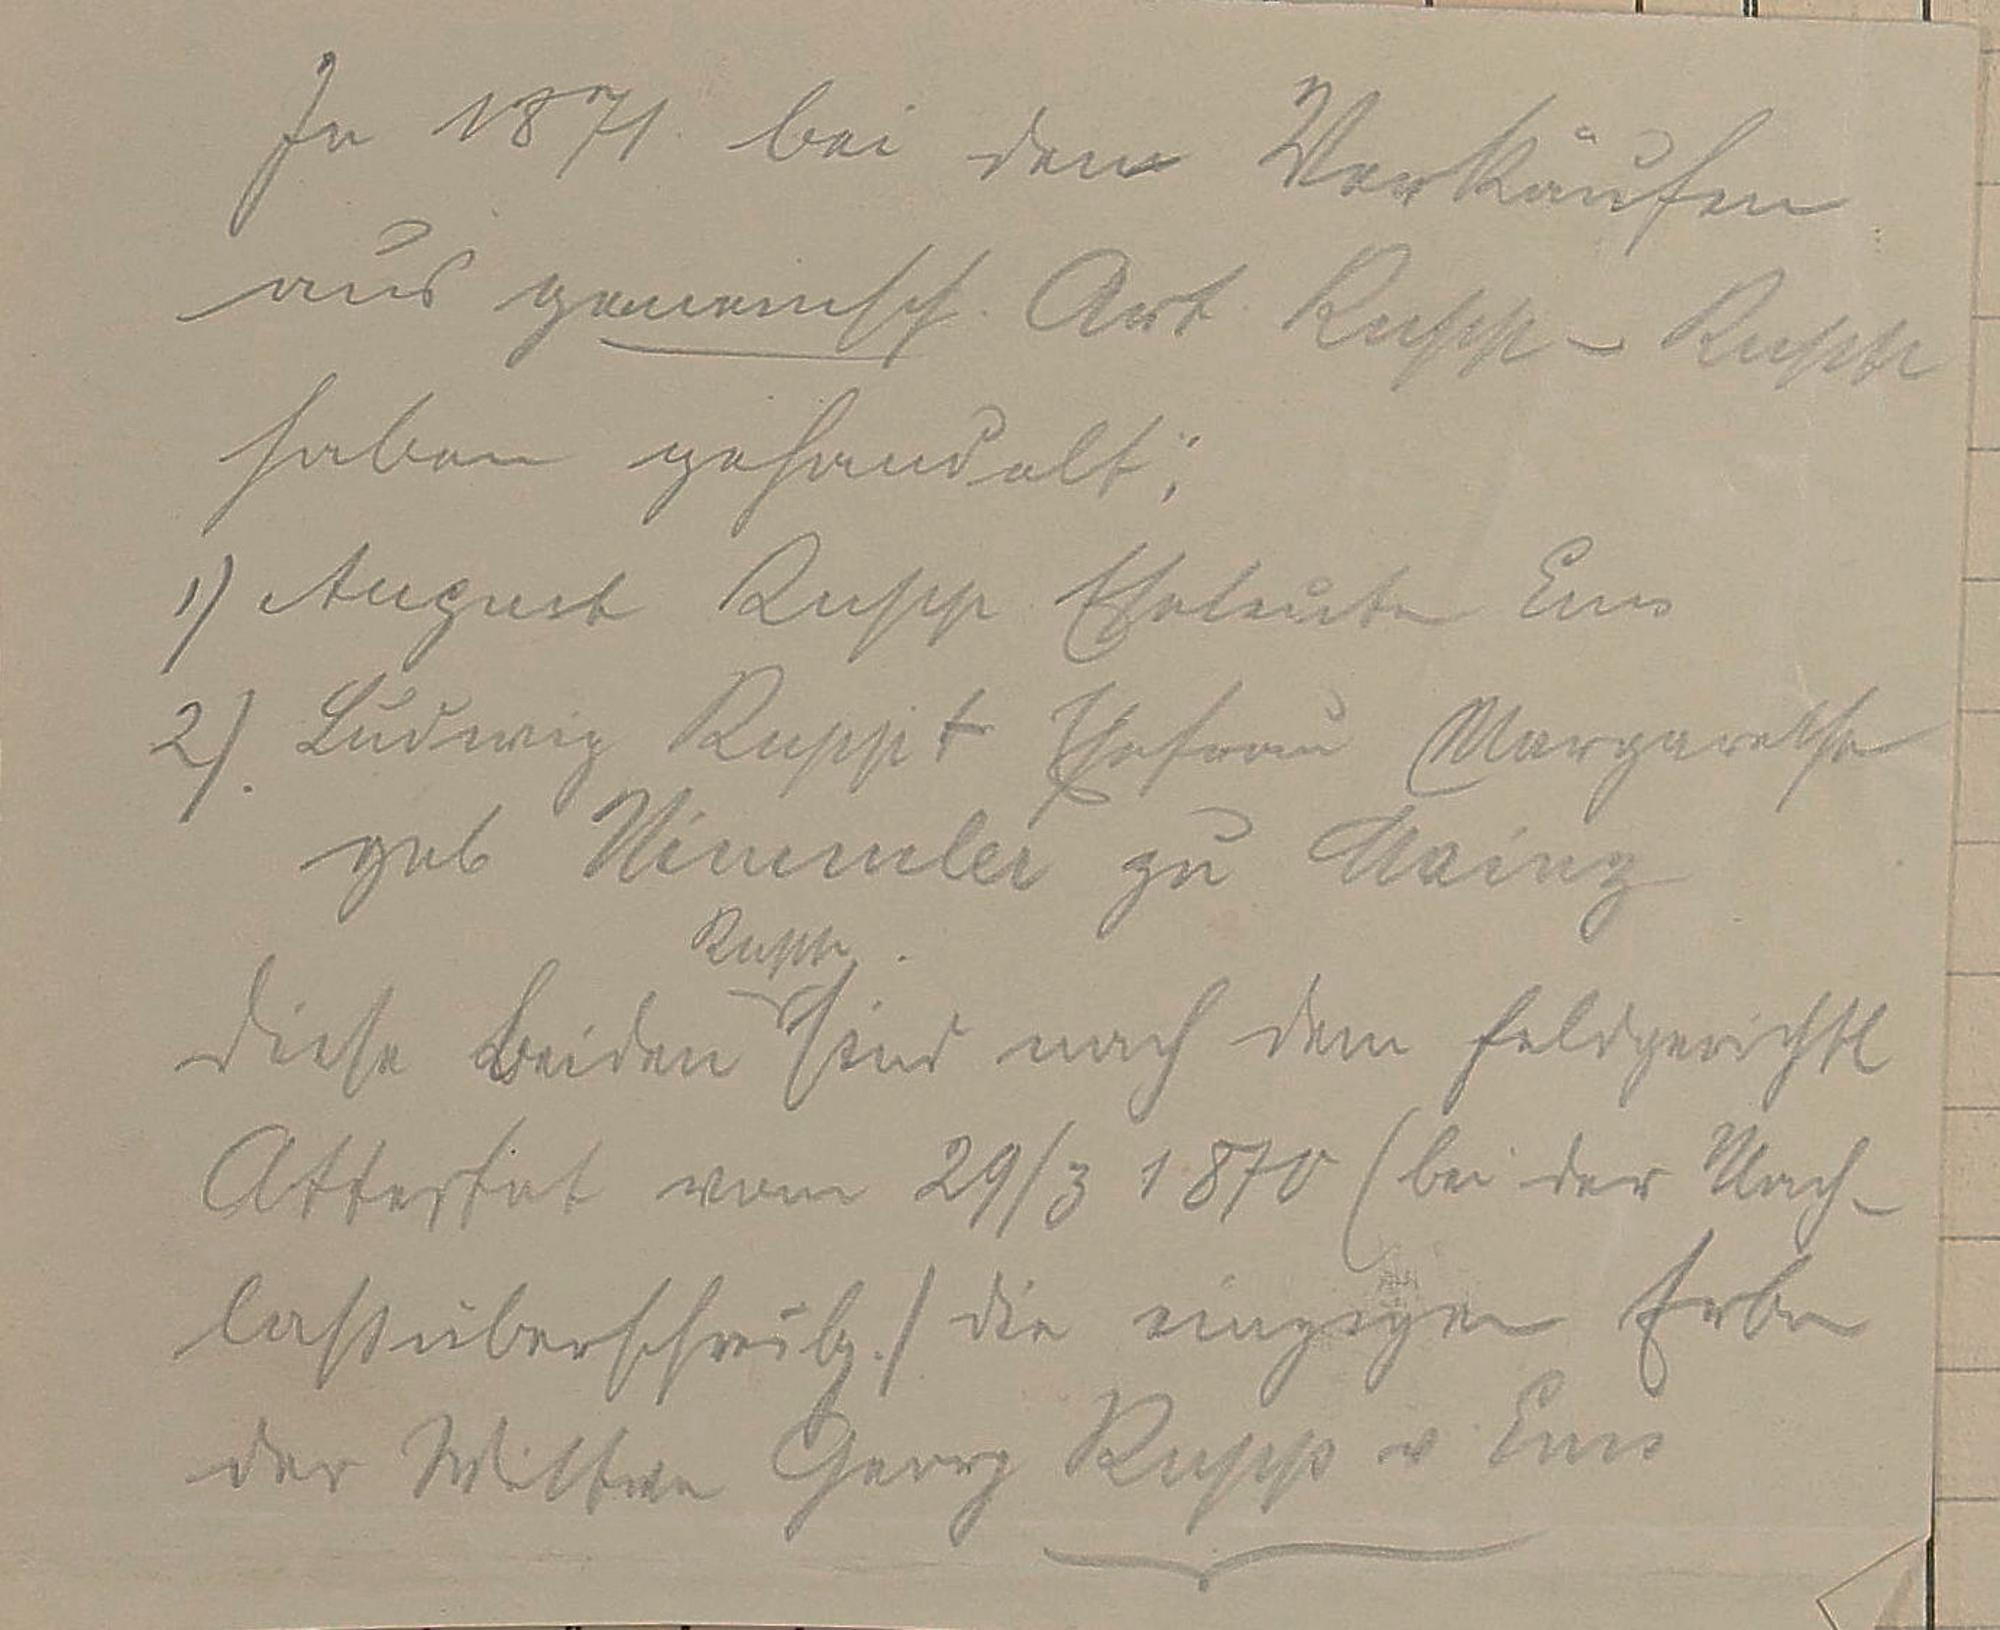 In 1871 bei den Verkäufen
aus gemeinsch. Art. Rupp - Rupp
haben gehandelt:
1) August Rupp Eheleute Ems
2). Ludwig Rupp Ehefrau Margarethe
geb Nimmler zu Mainz
Rupp
diese beiden sind nach dem feldgerichtl
Attestat vom 29/3 1870 (bei der Nach-
lassüberschreibg.) die einzigen Erben
der Wittwe Georg Rupp v. Ems